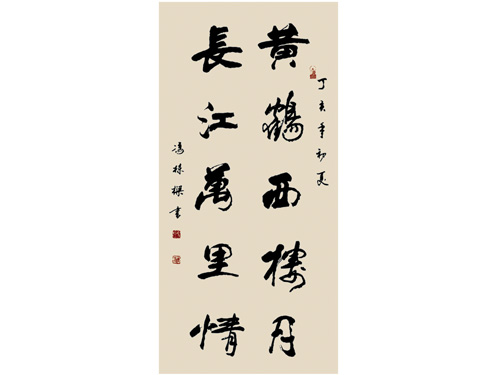 丁亥年初夏
黄鶴西樓月
長江萬里情
書